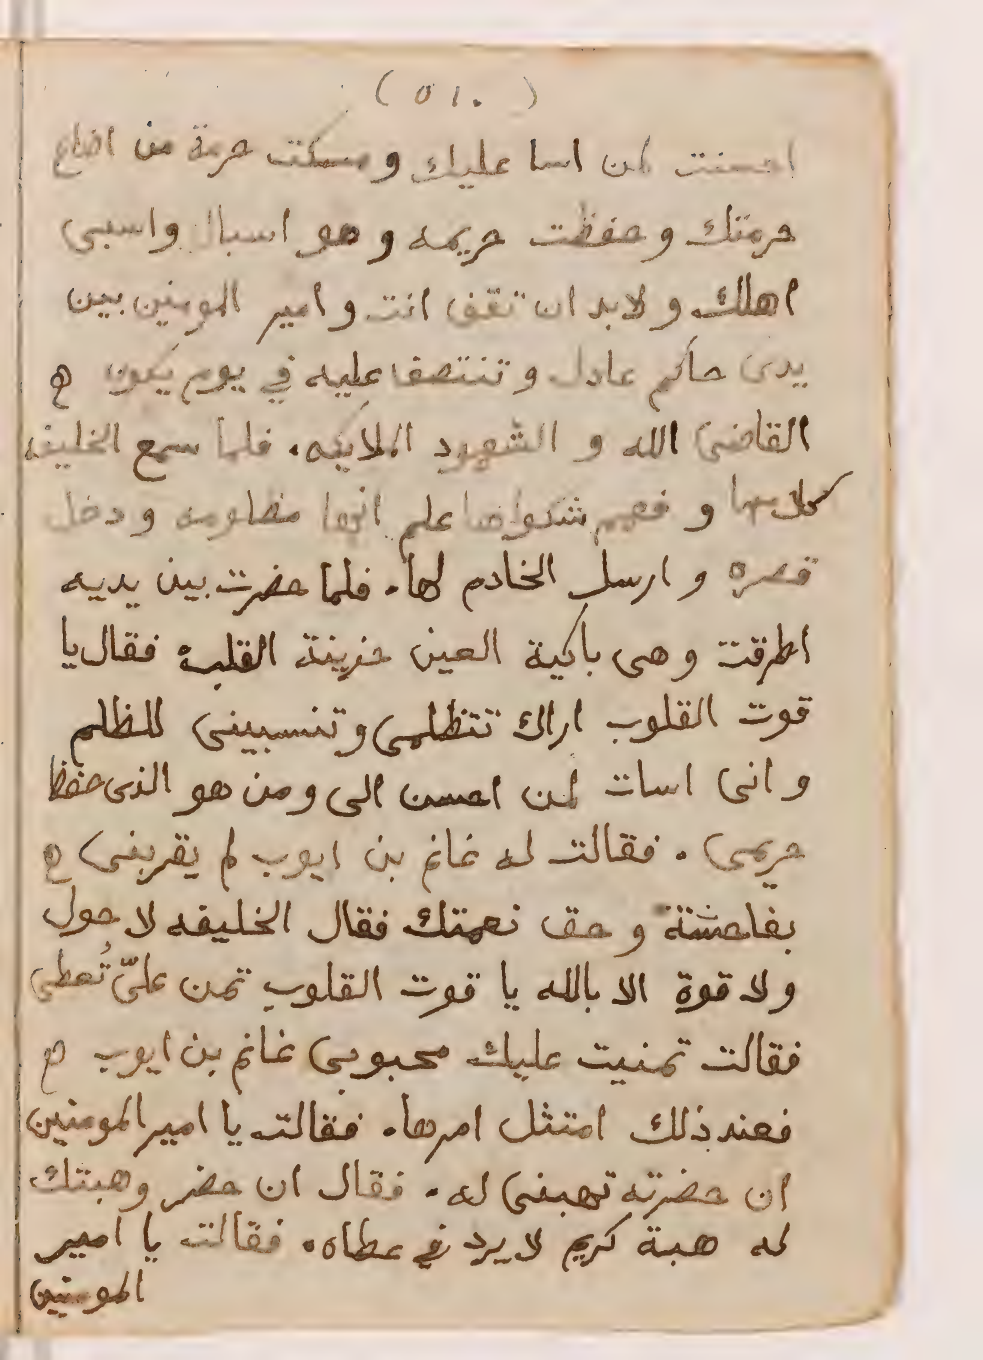 ( ٥١٠ )
احسنت لمن اسا عليك ومسكت حرمة من اضاع
حرمتك وحفظت حريمه وهو اسبال واسبى
اهلك ولابد ان تقف انت وامير المومنين بين
يدى حاكم عادل وتنتصف عليه في يوم يكون ه
القاضى الله و الشهود الملايكه. فلما سمع الخليفه
كلامها و فهم شكواها علم انها مظلومه ودخل
قصره و ارسل الخادم لها. فلما حضرت بين يديه
اطرقت وهى باكية العين حزينة القلب فقال يا
قوت القلوب اراك تتظلمى وتنسبينى للظلم
وانى اسات لمن احسن الى ومن هو الذى حفظ
حريمى . فقالت له غانم بن ايوب لم يقربنى ه
بفاحشة وحق نعمتك فقال الخليفه لا حول
ولا قوة الا بالله يا قوت القلوب تمن علىّ تُعطى
فقالت تمنيت عليك محبوبى غانم بن ايوب ه
فعند ذلك امتثل امرها. فقالت يا امير المومنين
ان حضرته تهبنى له. فقال ان حضر وهبتك
له هبة كريم لا يرد في عطاه. فقالت يا امير
المومنين